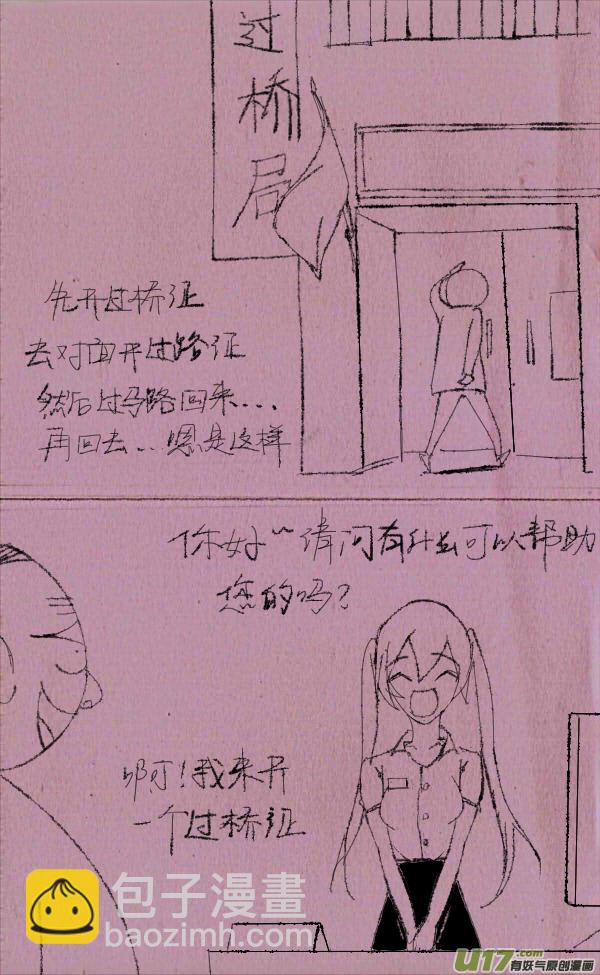 过桥局
先开过桥证
去对面开过路证
然后过马路回来...
再回去...嗯是这样
你好~请问有什么可以帮助
您的吗？
啊！我来开
一个过桥证
包子漫畫
baozimh.com
U17.com
有妖气原创漫画